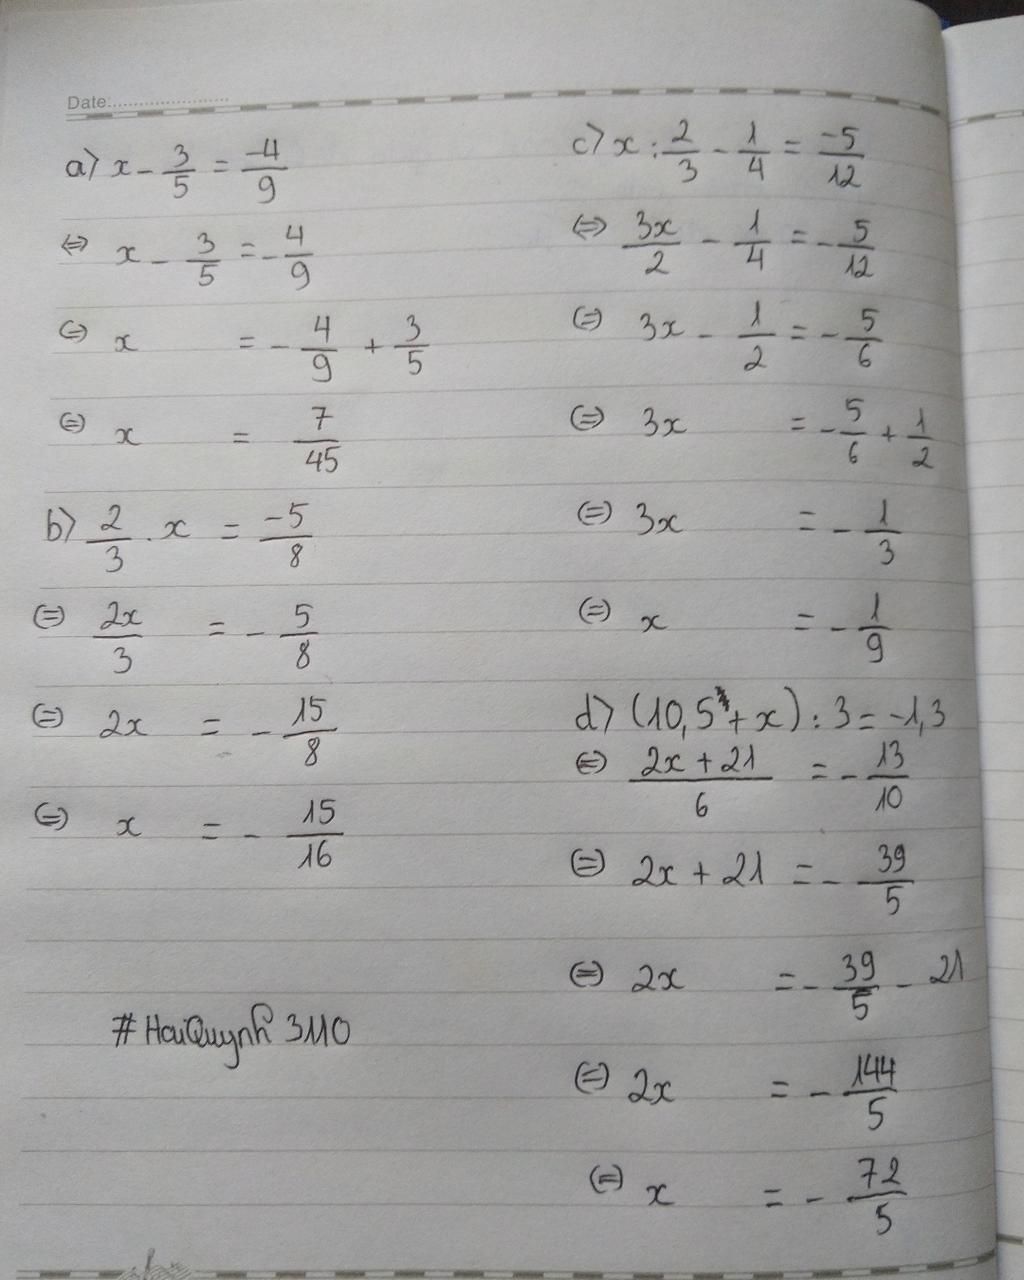 Date:........................
a) x - 3/5 = -4/9
⇔ x - 3/5 = - 4/9
⇔ x = - 4/9 + 3/5
⇔ x = 7/45
b) 2/3 . x = -5/8
⇔ 2x/3 = - 5/8
⇔ 2x = - 15/8
⇔ x = - 15/16
#HaiQuynh 3110
c) x : 2/3 - 1/4 = -5/12
⇔ 3x/2 - 1/4 = - 5/12
⇔ 3x - 1/2 = - 5/6
⇔ 3x = - 5/6 + 1/2
⇔ 3x = - 1/3
⇔ x = - 1/9
d) (10,5 + x) : 3 = -1,3
⇔ 2x + 21/6 = - 13/10
⇔ 2x + 21 = - 39/5
⇔ 2x = - 39/5 - 21
⇔ 2x = - 144/5
⇔ x = - 72/5